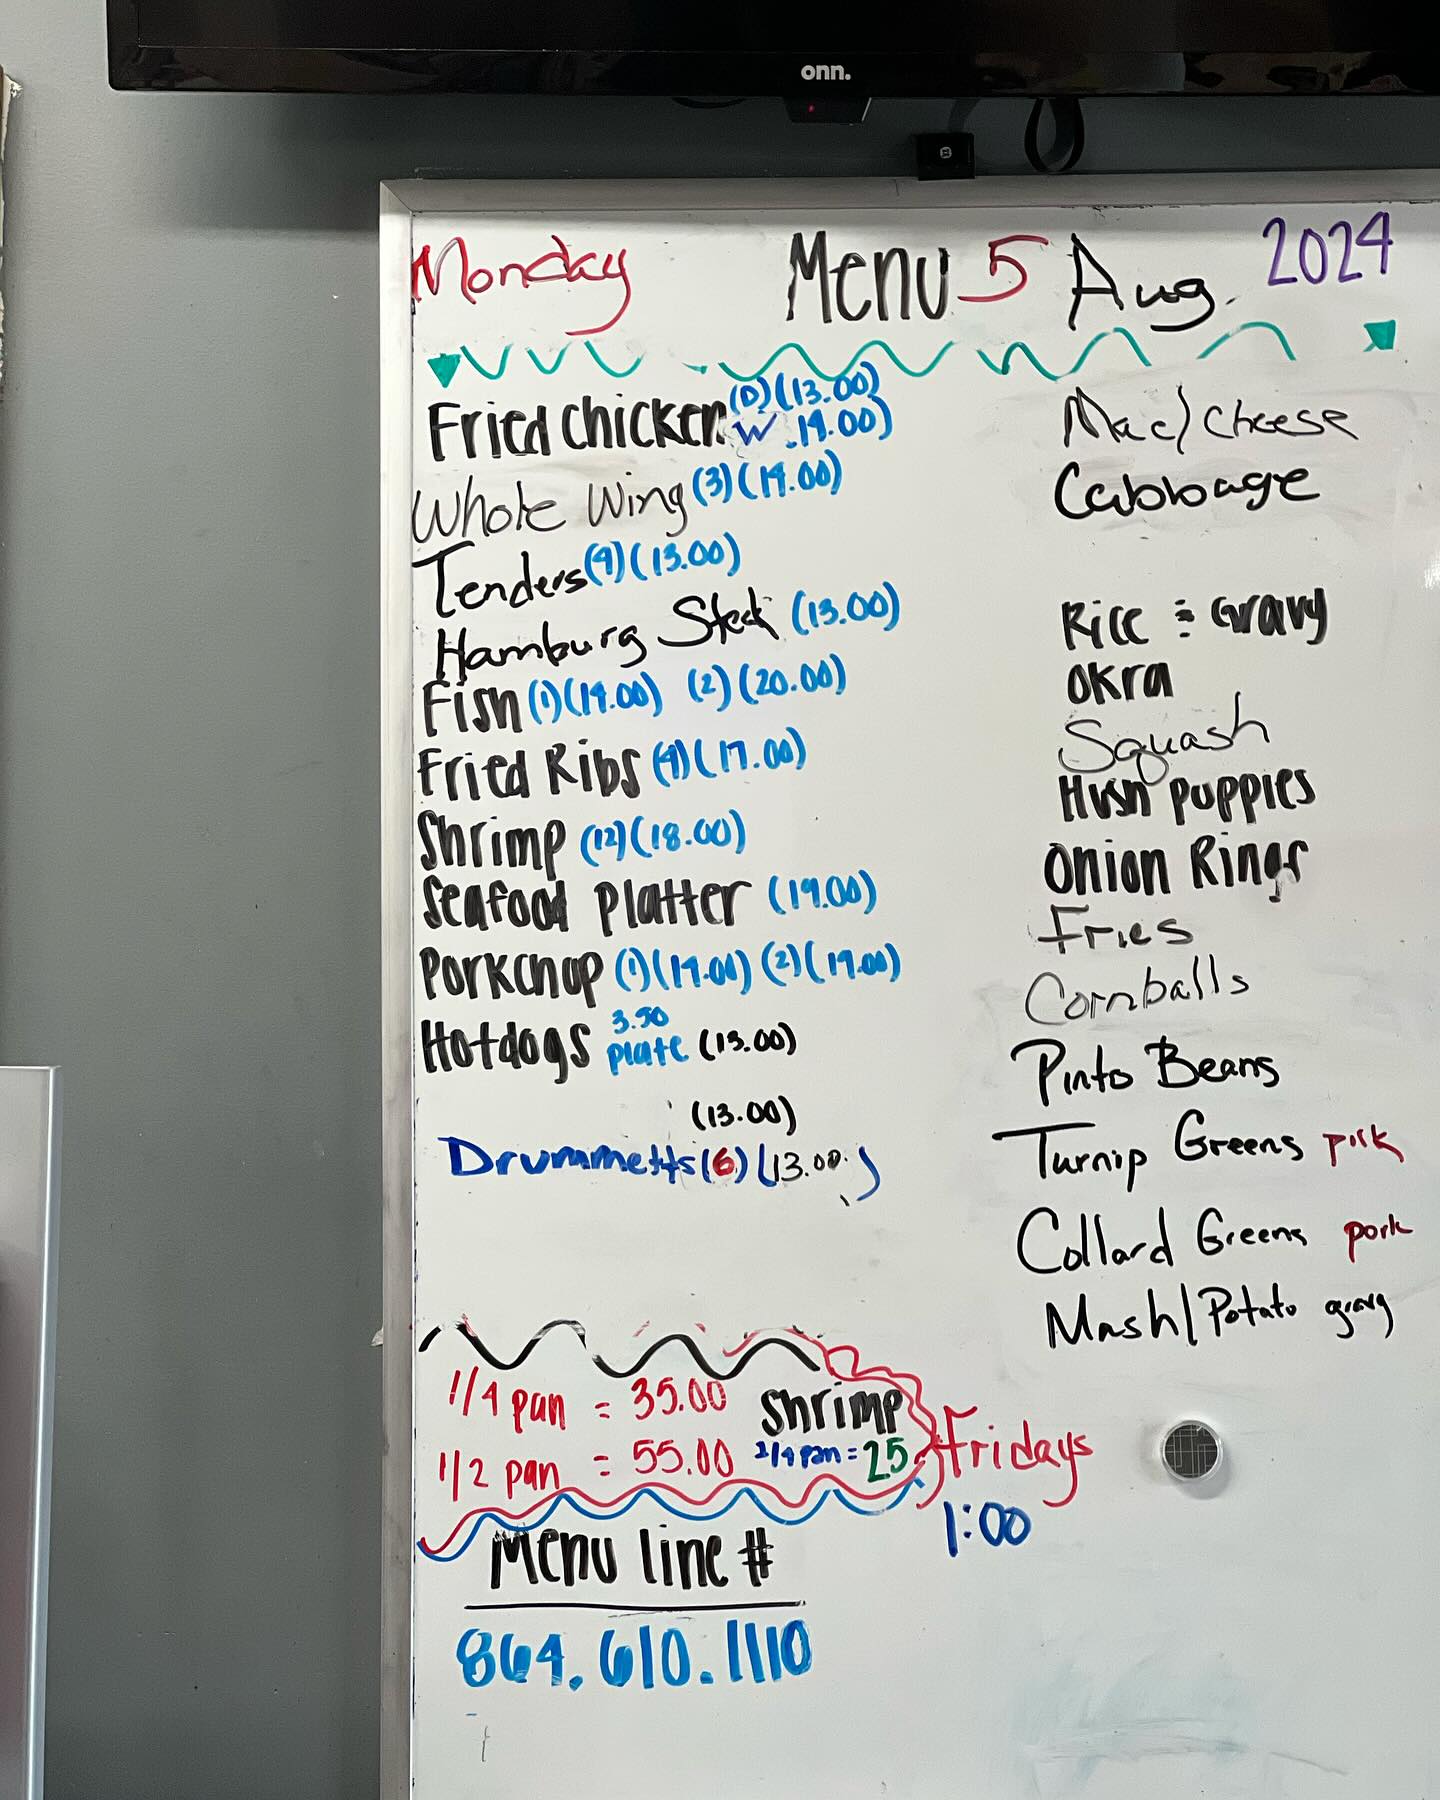 onn.
Monday Menu 5 Aug. 2024
Fried chicken (D)(13.00)
W 14.00)
Whole Wing (3)(14.00)
Tenders (4)(13.00)
Hamburg Steak (13.00)
Fish (1)(14.00) (2)(20.00)
Fried Ribs (4)(17.00)
Shrimp (12)(18.00)
Seafood platter (19.00)
Porkchop (1)(14.00) (2)(19.00)
Hotdogs 3.50
plate (13.00)
(13.00)
Drummetts (6)(13.00)
Mac/cheese
Cabbage
Rice & Gravy
Okra
Squash
Hush puppies
Onion Rings
Fries
Cornballs
Pinto Beans
Turnip Greens pork
Collard Greens pork
Mash/Potato gravy
1/4 pan = 35.00
1/2 pan = 55.00
Shrimp
1/4 pan = 25
Fridays
1:00
Menu line #
864.610.1110